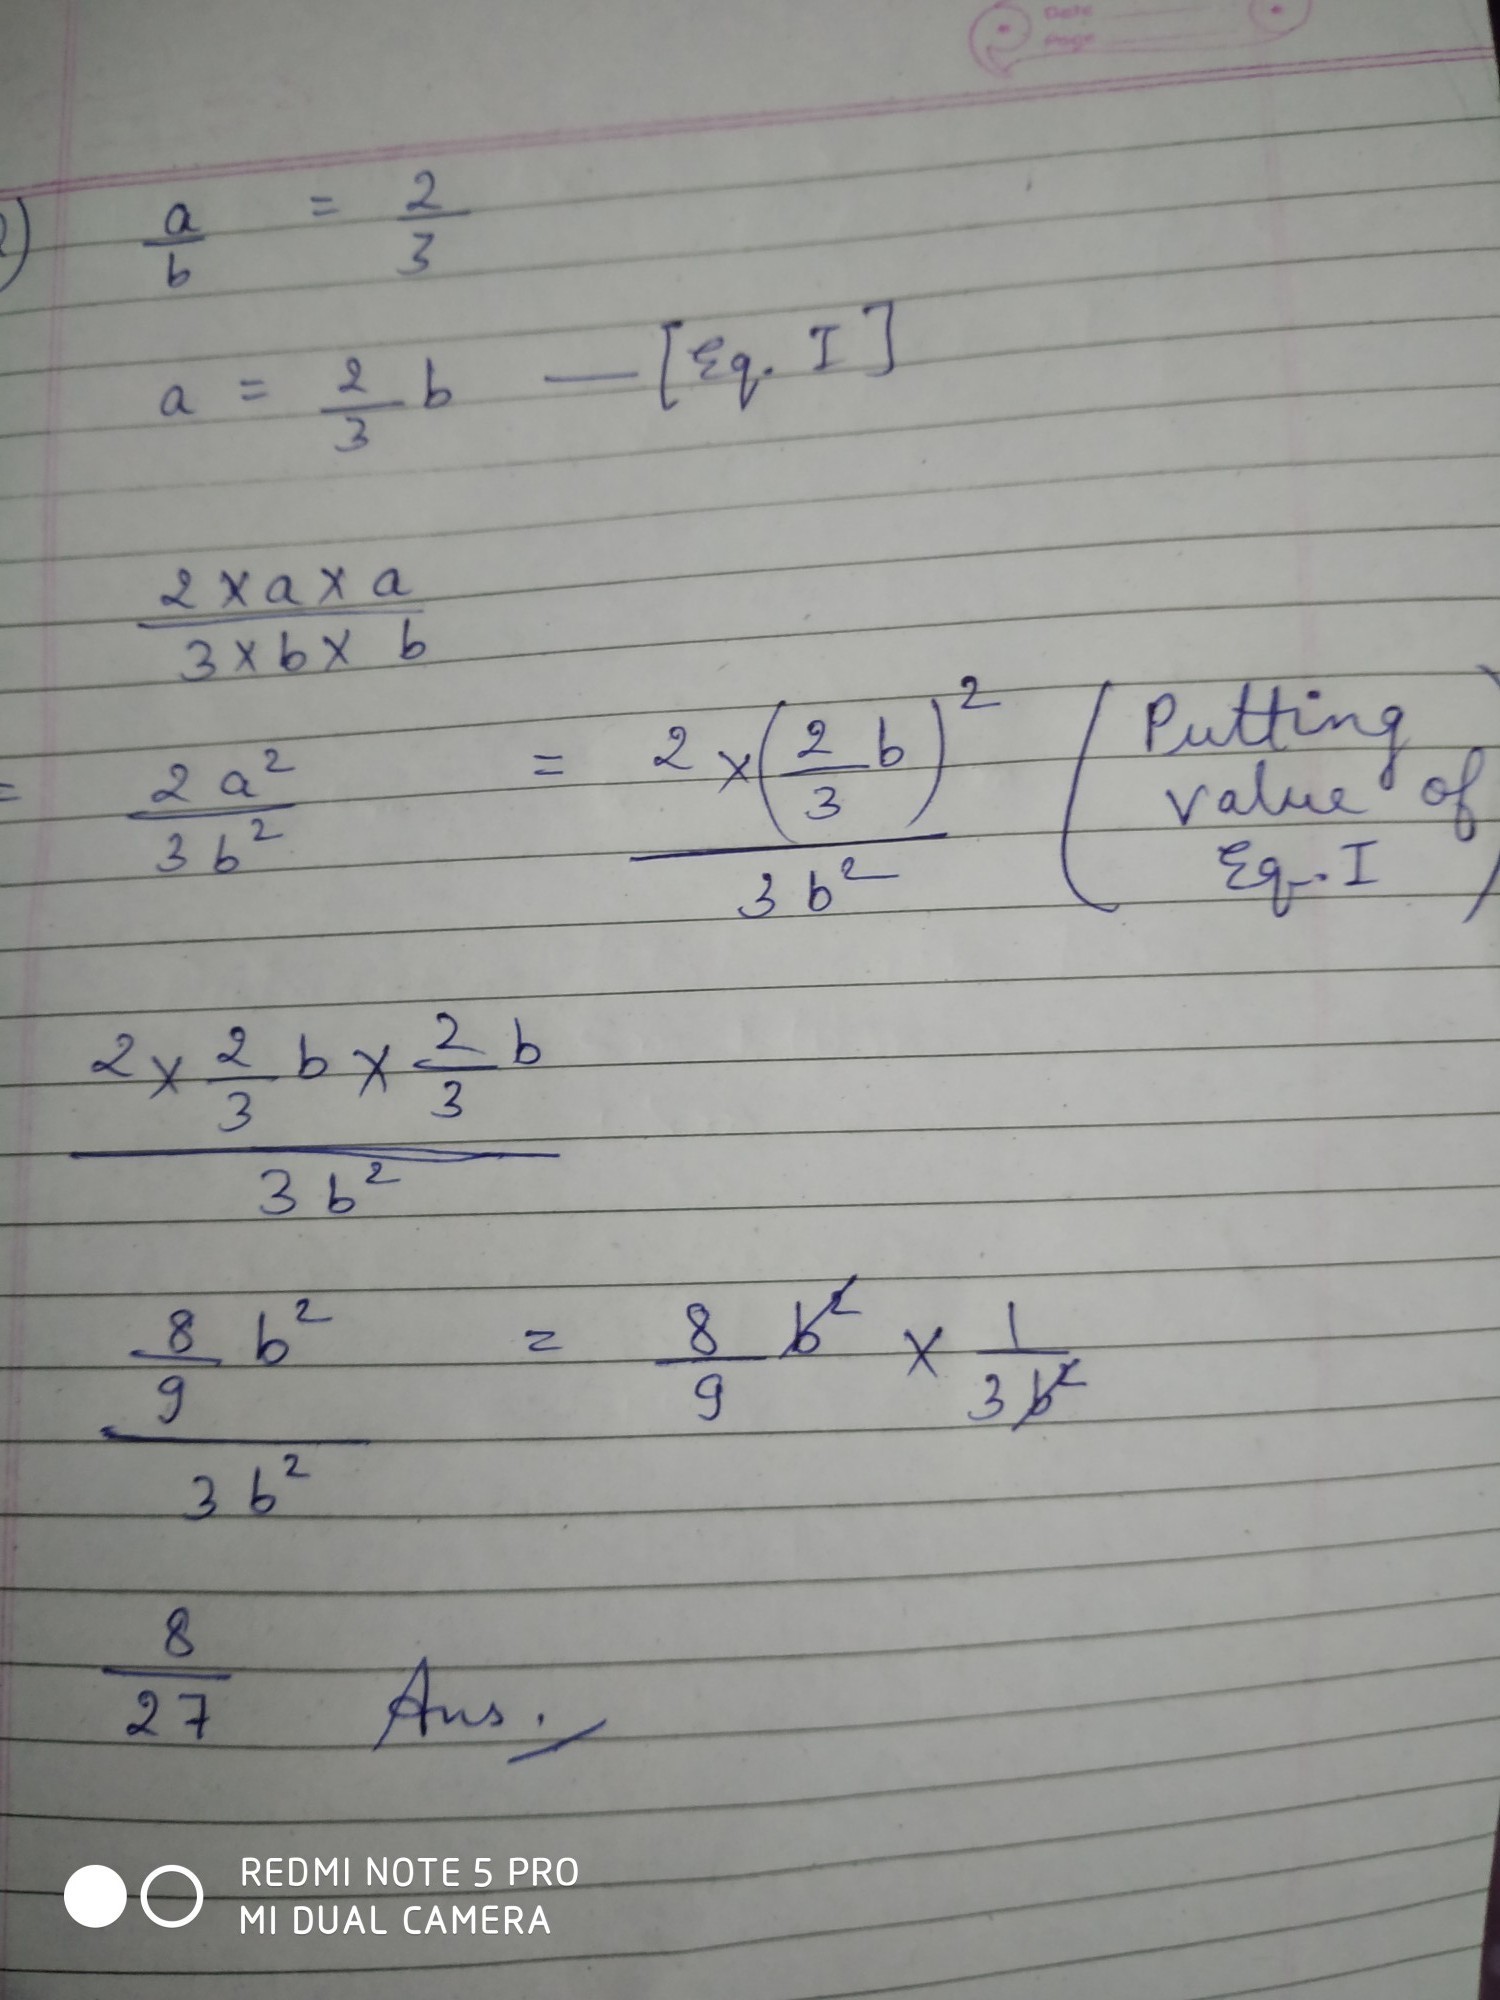 Date
Page
a/b = 2/3
a = 2/3 b — [Eq. I]
2 × a × a / 3 × b × b
= 2a² / 3b² = 2 × (2/3 b)² / 3b² (Putting value of Eq. I)
2 × 2/3 b × 2/3 b / 3b²
8/9 b² / 3b² = 8/9 b² × 1/3b²
8/27 Ans.
REDMI NOTE 5 PRO
MI DUAL CAMERA